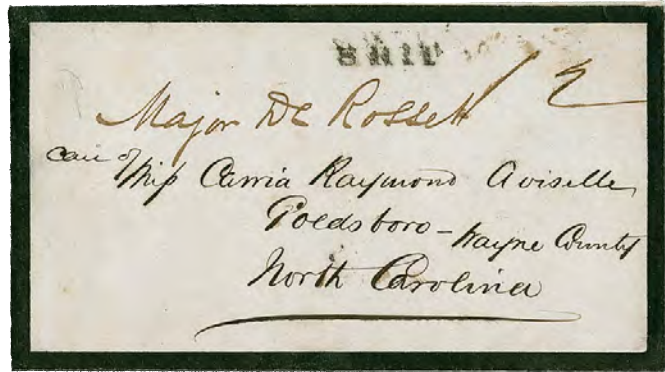 SHIP
Major De Rossett
Care of Miss Carria Raymond Aviselle
Goldsboro - Wayne County
North Carolina